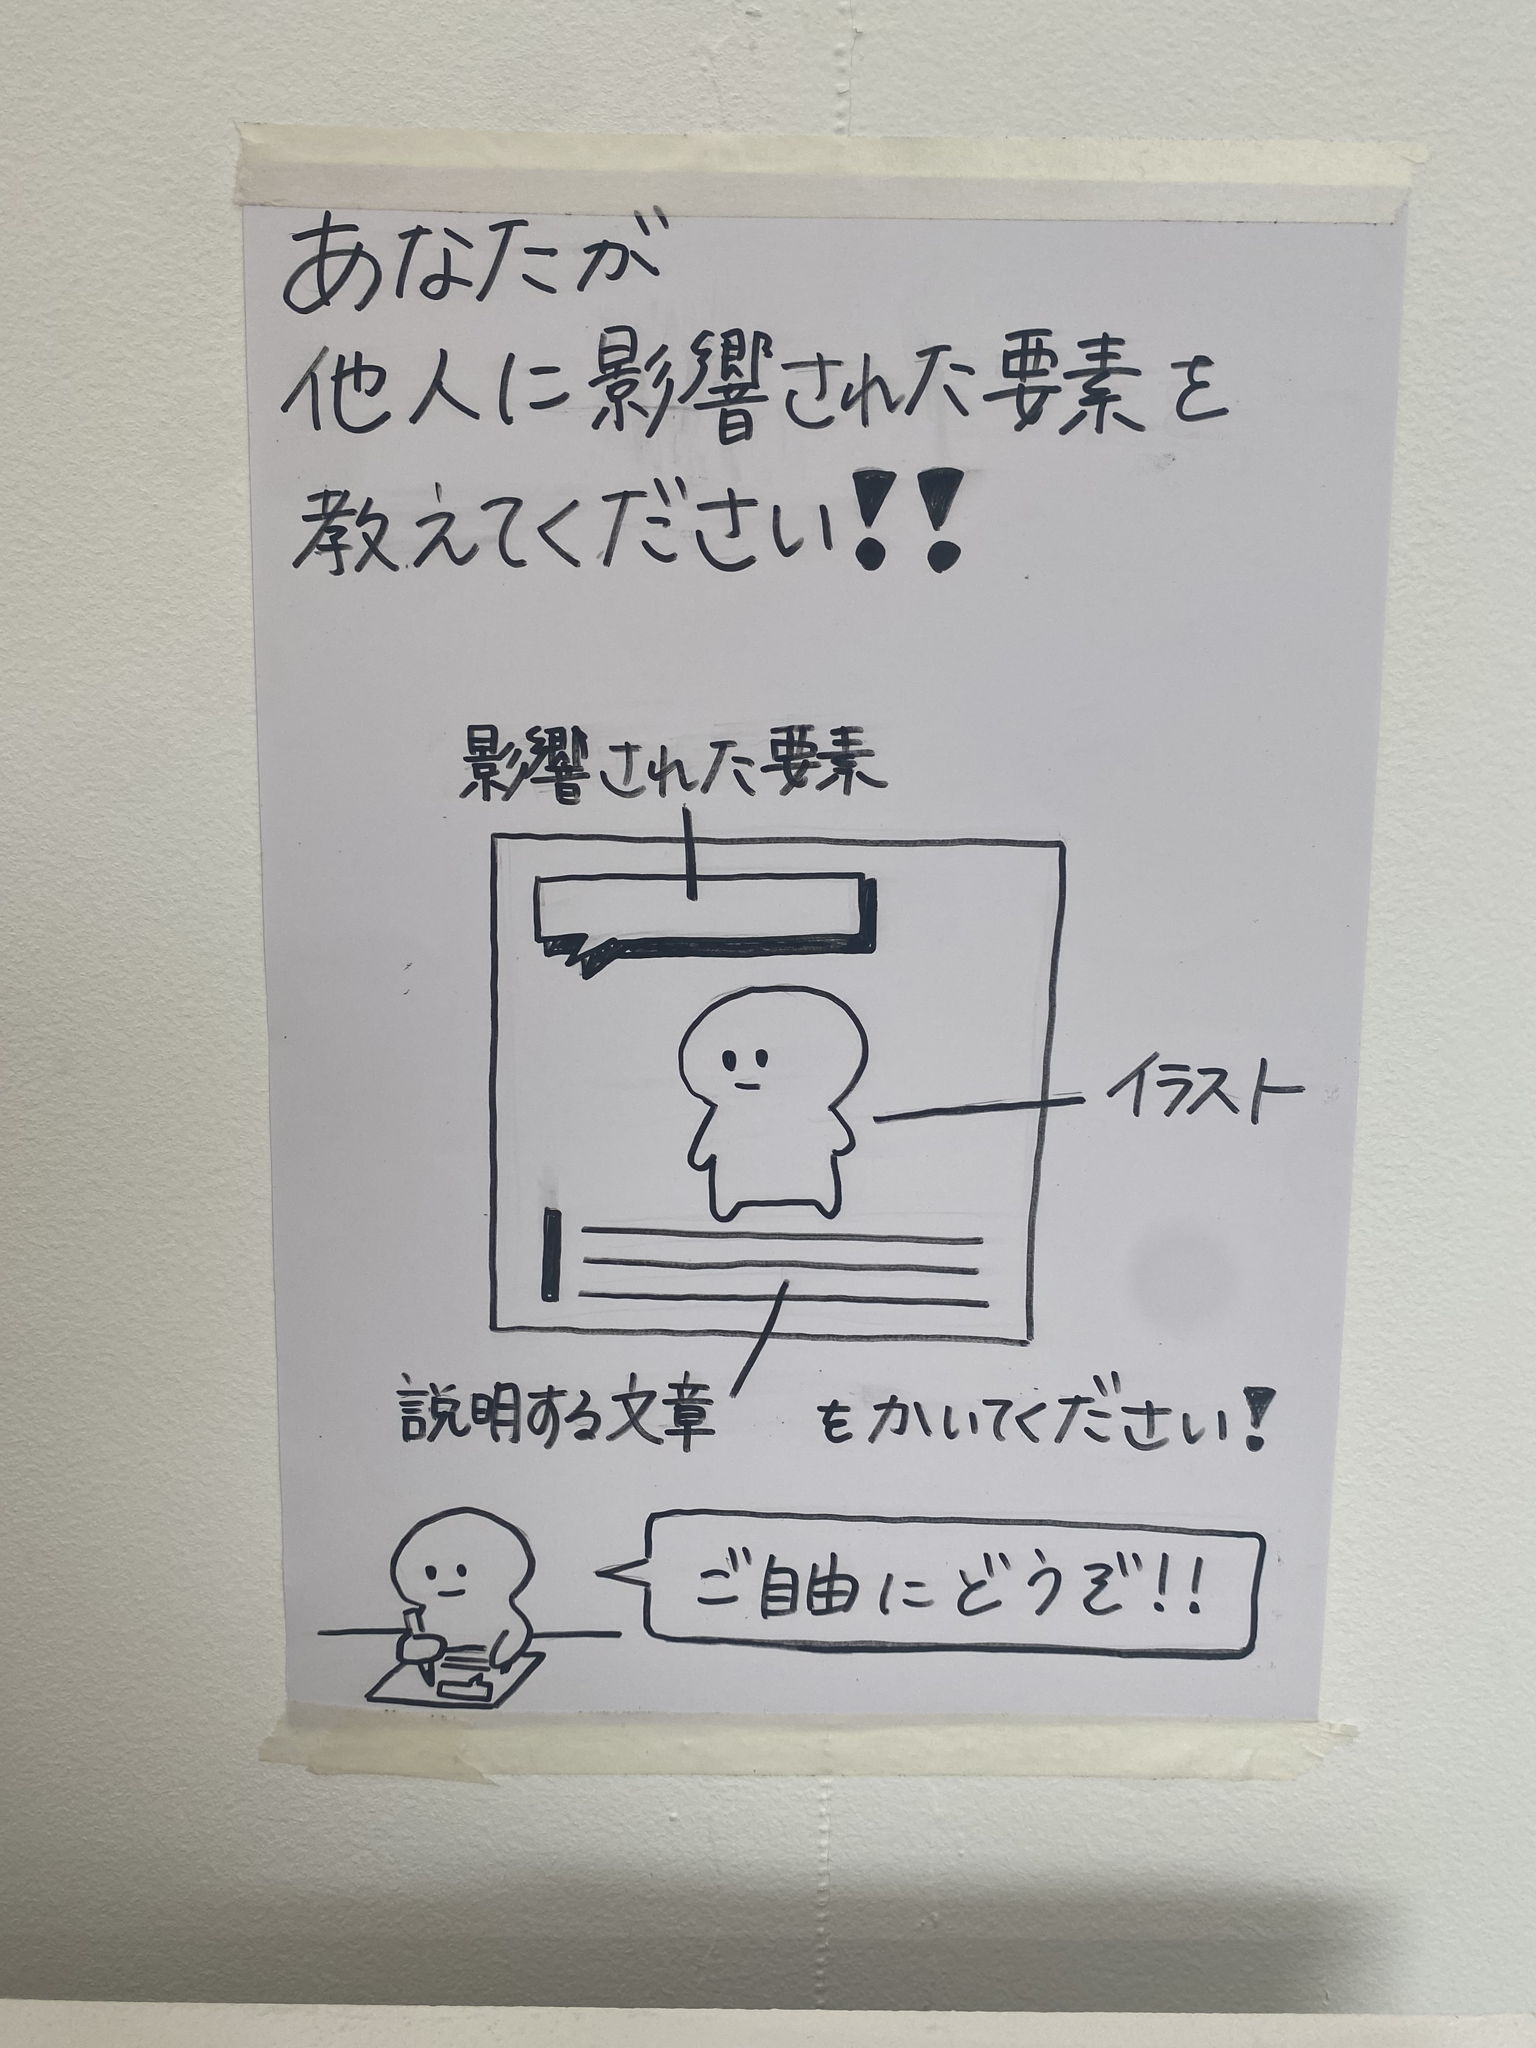 あなたが
他人に影響された要素を
教えてください!!
影響された要素
イラスト
説明する文章 もかいてください!
ご自由にどうぞ!!